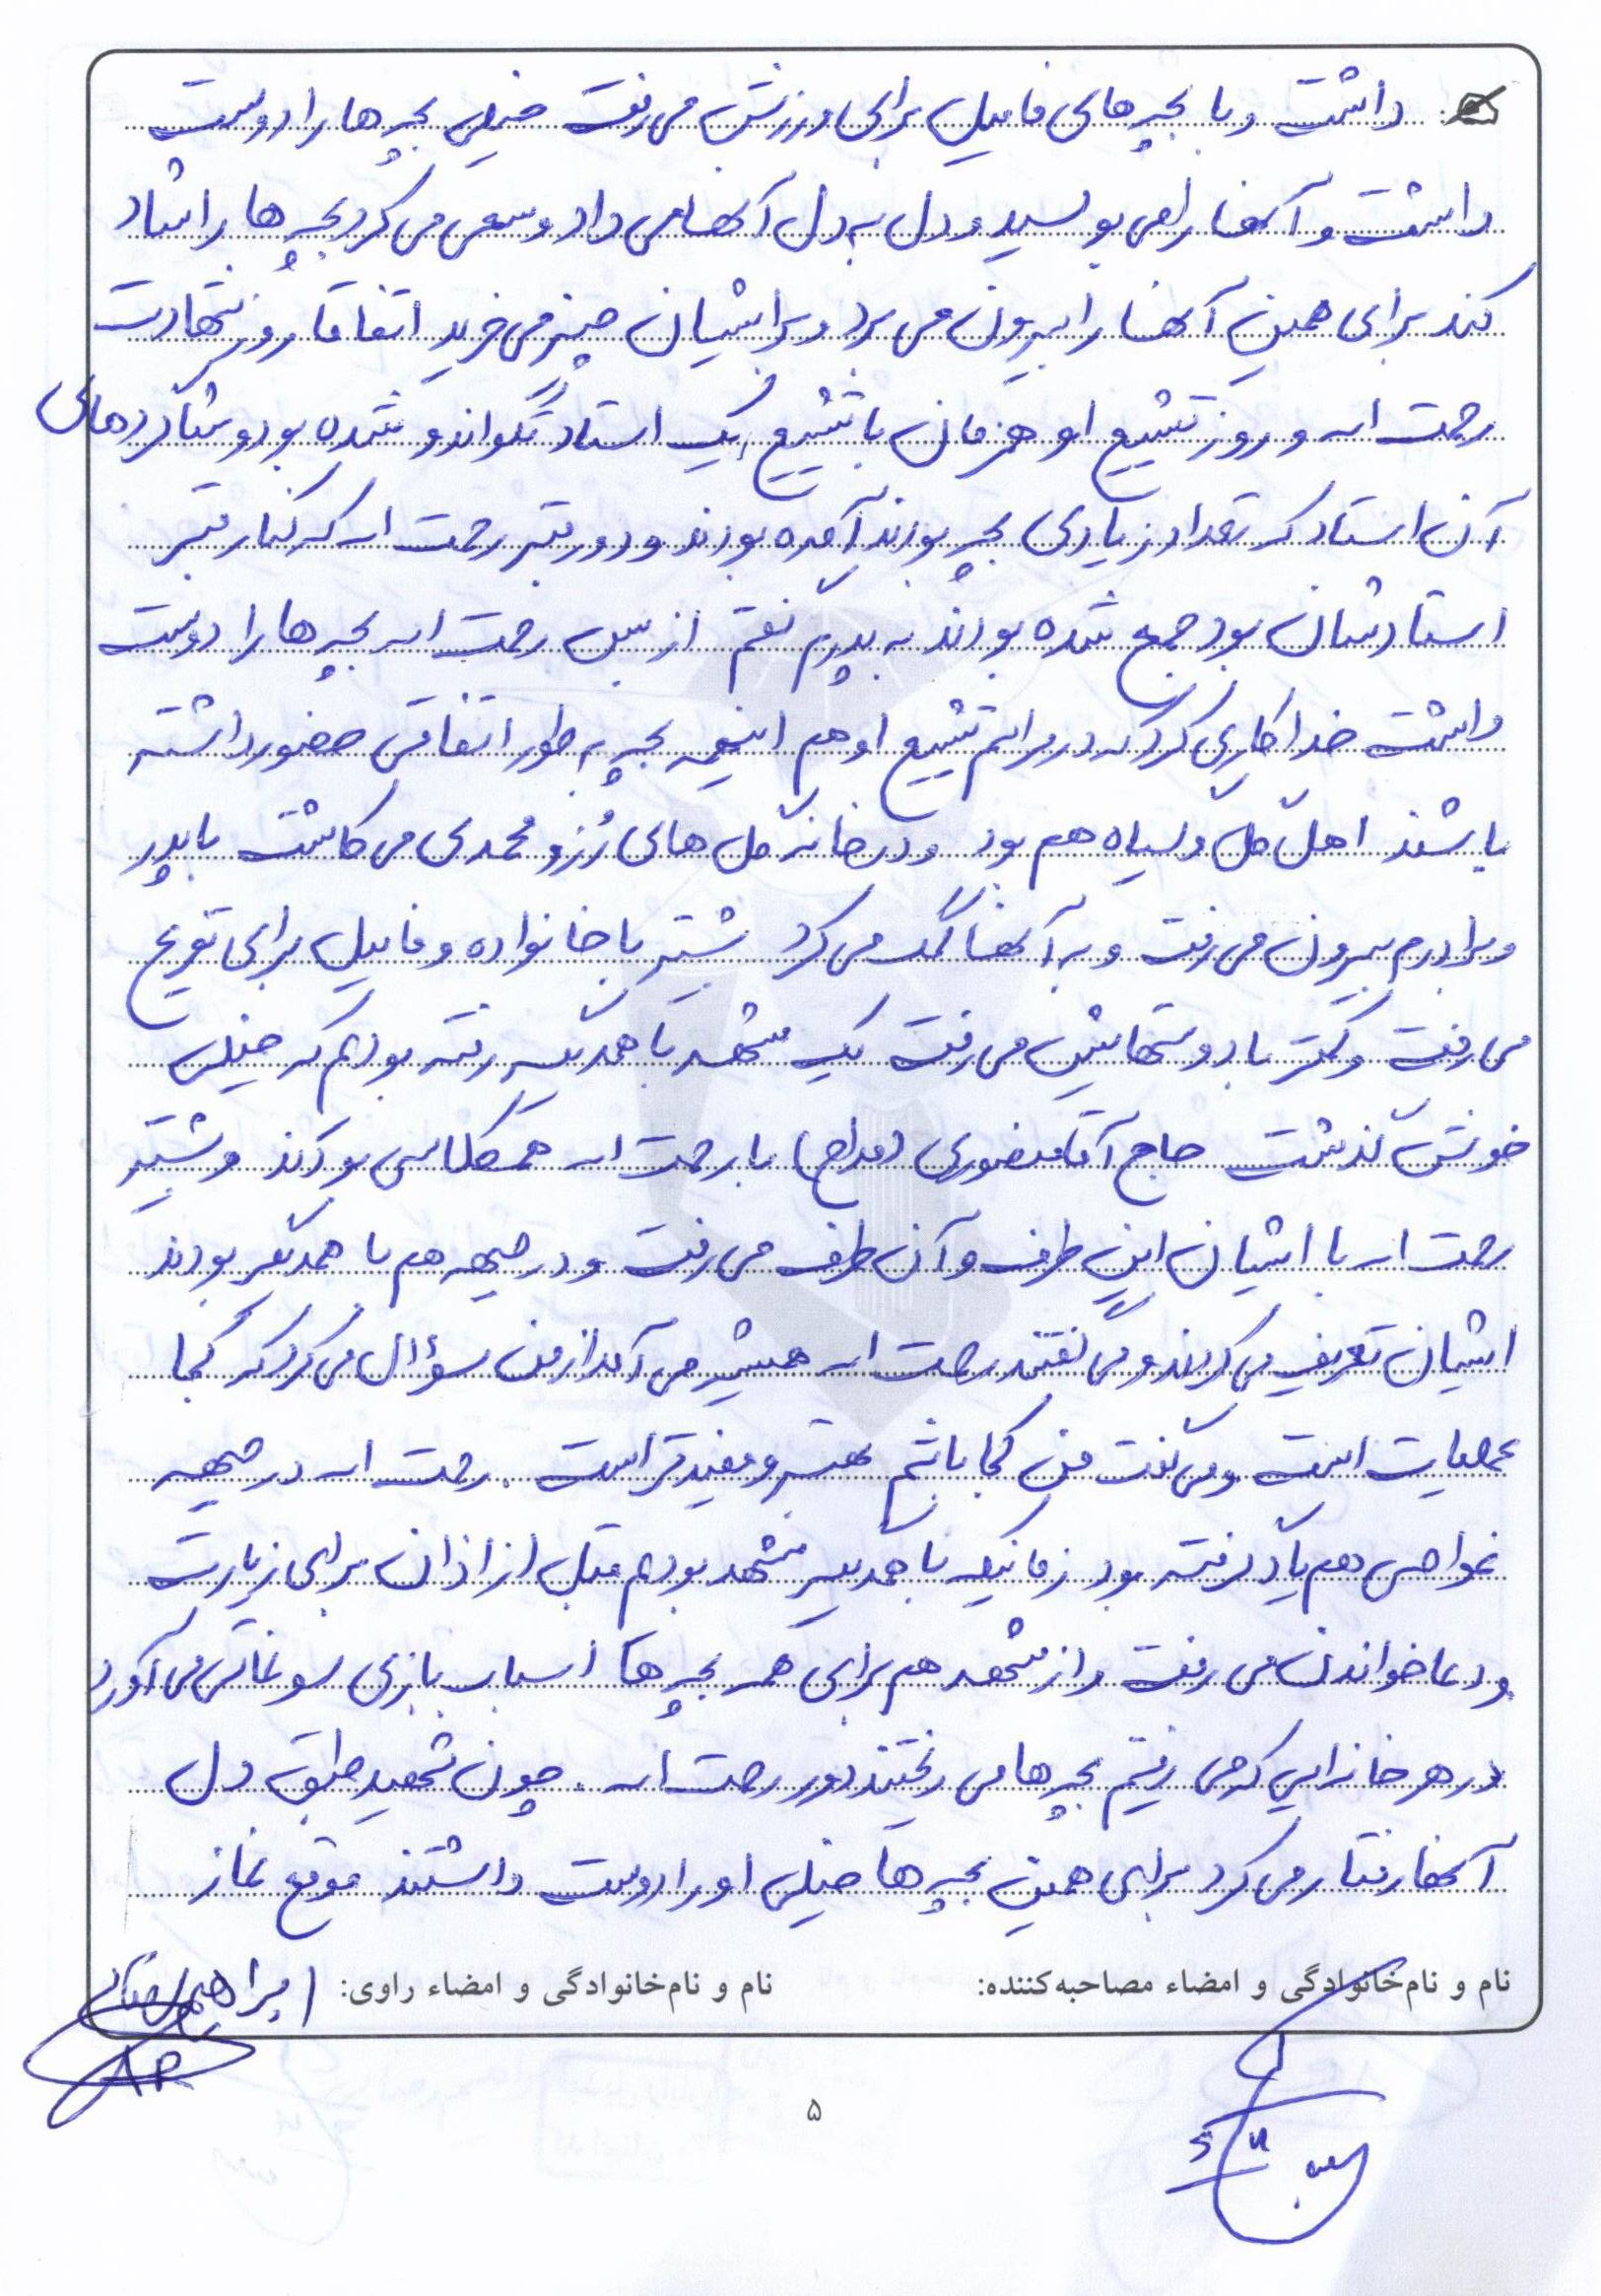 داشت و با بچه های فامیل برای ورزش می رفت خیلی بچه ها را دوست
داشت و آنها را می بوسید و دل به دل آنها می داد و سعی می کرد بچه ها را شاد
کند برای همین آنها را بیرون می برد و برایشان چیز می خرید اتفاقا روز شهادت
رحمت اله و روز تشییع او همزمان با تشییع یک استاد تکواندو شده بود و شاگردهای
آن استاد که تعداد زیادی بچه بودند آمده بودند و دور قبر رحمت اله که کنار قبر
استادشان بود جمع شده بودند به پدرم گفتم از بس رحمت اله بچه ها را دوست
داشت خدا کاری کرد که در مراسم تشییع او هم اینهمه بچه به طور اتفاقی حضور داشته
باشند اهل گل و گیاه هم بود و در خانه گل های رُز و محمدی می کاشت با پدر
و برادرم بیرون می رفت و به آنها کمک می کرد بیشتر با خانواده و فامیل برای تفریح
می رفت و کمتر با دوستهایش می رفت یک مشهد با همدیگر رفته بودیم که خیلی
خوش گذشت حاج آقا منصوری (مداح) با رحمت اله همکلاسی بودند و بیشتر
رحمت اله با ایشان این طرف و آن طرف می رفت و در جبهه هم با همدیگر بودند
ایشان تعریف می کردند و می گفتند رحمت اله همیشه می آمد از من سؤال می کرد که کجا
عملیات است و می گفت من کجا باشم بهتر و مفیدتر است . رحمت اله در جبهه
غواصی هم یاد گرفته بود زمانیکه با همدیگر مشهد بودیم قبل از اذان برای زیارت
و دعا خواندن می رفت و از مشهد هم برای همه بچه ها اسباب بازی سوغاتی می آورد
در هر خانه ایی که می رفتیم بچه ها می ریختند دور رحمت اله . چون شهید طبق دل
آنها رفتار می کرد برای همین بچه ها خیلی او را دوست داشتند موقع نماز
نام و نام‌خانوادگی و امضاء مصاحبه‌کننده: نام و نام‌خانوادگی و امضاء راوی: ابراهیم
۵